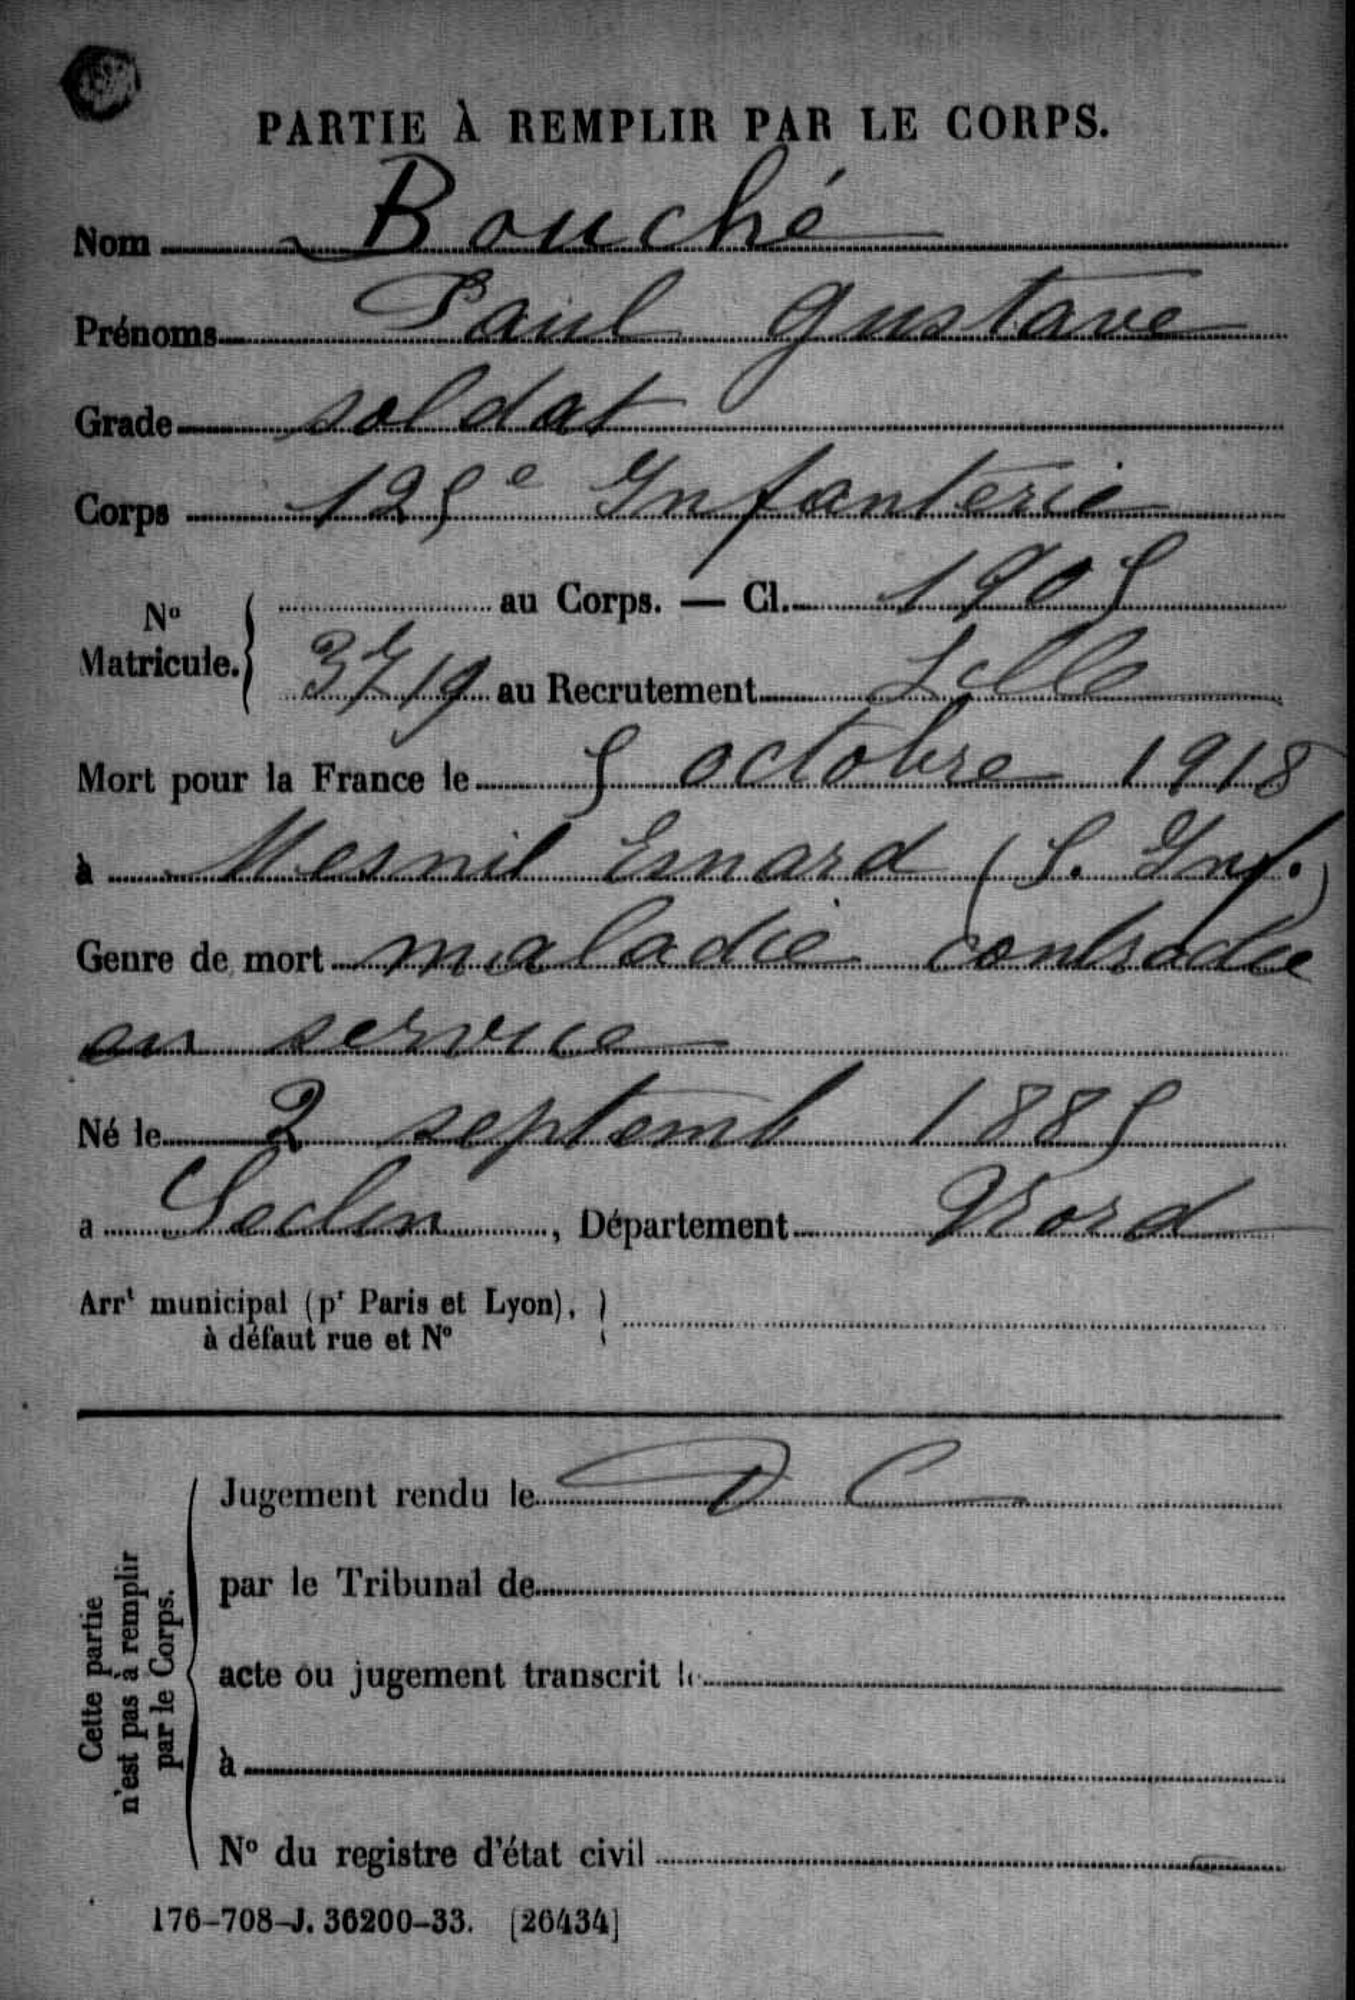 PARTIE À REMPLIR PAR LE CORPS.
Nom Bouché
Prénoms Paul Gustave
Grade soldat
Corps 125e Infanterie
No Matricule. { au Corps. — Cl. 1905
3719 au Recrutement Lille
Mort pour la France le 5 octobre 1918
à Mesnil Esnard (S. Inf.)
Genre de mort maladie contractée
en service
Né le 2 septemb 1885
a Seclin, Département Nord
Arrt municipal (pr Paris et Lyon), }
à défaut rue et No
Cette partie
n'est pas à remplir
par le Corps.
Jugement rendu le D C
par le Tribunal de
acte ou jugement transcrit le
à
No du registre d'état civil
176-708-J. 36200-33. [26434]